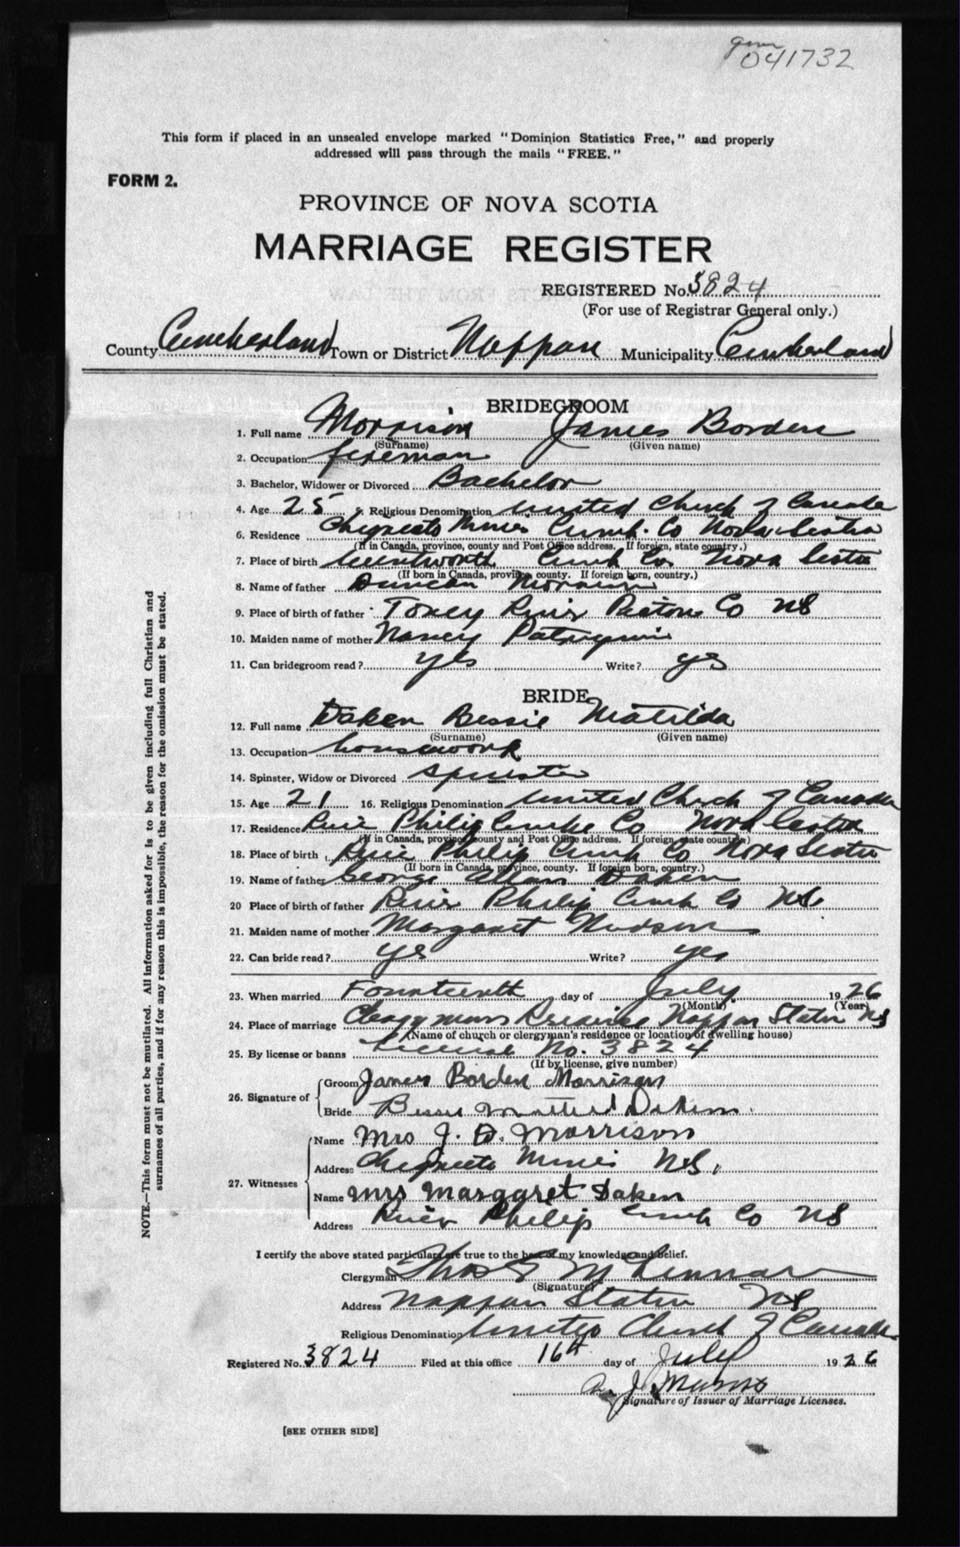 041732
This form if placed in an unsealed envelope marked "Dominion Statistics Free," and properly
addressed will pass through the mails "FREE."
FORM 2.
PROVINCE OF NOVA SCOTIA
MARRIAGE REGISTER
REGISTERED No. 3824
(For use of Registrar General only.)
County Cumberland Town or District Nappan Municipality Cumberland
BRIDEGROOM
1. Full name Morrison James Borden
(Surname) (Given name)
2. Occupation fireman
3. Bachelor, Widower or Divorced Bachelor
4. Age 25 5. Religious Denomination United Church of Canada
6. Residence Chignecto Mines Cumb. Co Nova Scotia
(If in Canada, province, county and Post Office address. If foreign, state country.)
7. Place of birth Wentworth Cumb Co. Nova Scotia
(If born in Canada, province, county. If foreign born, country.)
8. Name of father Duncan Morrison
9. Place of birth of father Toney River Pictou Co NS
10. Maiden name of mother Nancy
11. Can bridegroom read? yes Write? yes
BRIDE
12. Full name Daken Bessie Matilda
(Surname) (Given name)
13. Occupation housework
14. Spinster, Widow or Divorced Spinster
15. Age 21 16. Religious Denomination United Church of Canada
17. Residence River Philip Cumb Co Nova Scotia
(If in Canada, province, county and Post Office address. If foreign, state country)
18. Place of birth River Philip Cumb Co Nova Scotia
(If born in Canada, province, county. If foreign born, country.)
19. Name of father George Allan Daken
20 Place of birth of father River Philip Cumb Co NS
21. Maiden name of mother Margaret Hudson
22. Can bride read? yes Write? yes
23. When married Fourteenth day of July 1926
(Month) (Year)
24. Place of marriage Clergymans Residence Nappan Station NS
(Name of church or clergyman's residence or location of dwelling house)
25. By license or banns License No. 3824
(If by license, give number)
26. Signature of Groom James Borden Morrison
Bride Bessie Daken
27. Witnesses Name Mrs J. D. Morrison
Address Chignecto Mines NS.
Name Mrs Marggret Daken
Address River Philip Cumb Co NS
I certify the above stated particulars are true to the best of my knowledge and belief.
Clergyman Thos
(Signature)
Address Nappan Station NS
Religious Denomination United Church of Canada
Registered No. 3824 Filed at this office 16th day of July 1926
J.
Signature of Issuer of Marriage Licenses.
[SEE OTHER SIDE]
NOTE.—This form must not be mutilated. All information asked for is to be given including full Christian and
surnames of all parties, and if for any reason this is impossible, the reason for the omission must be stated.